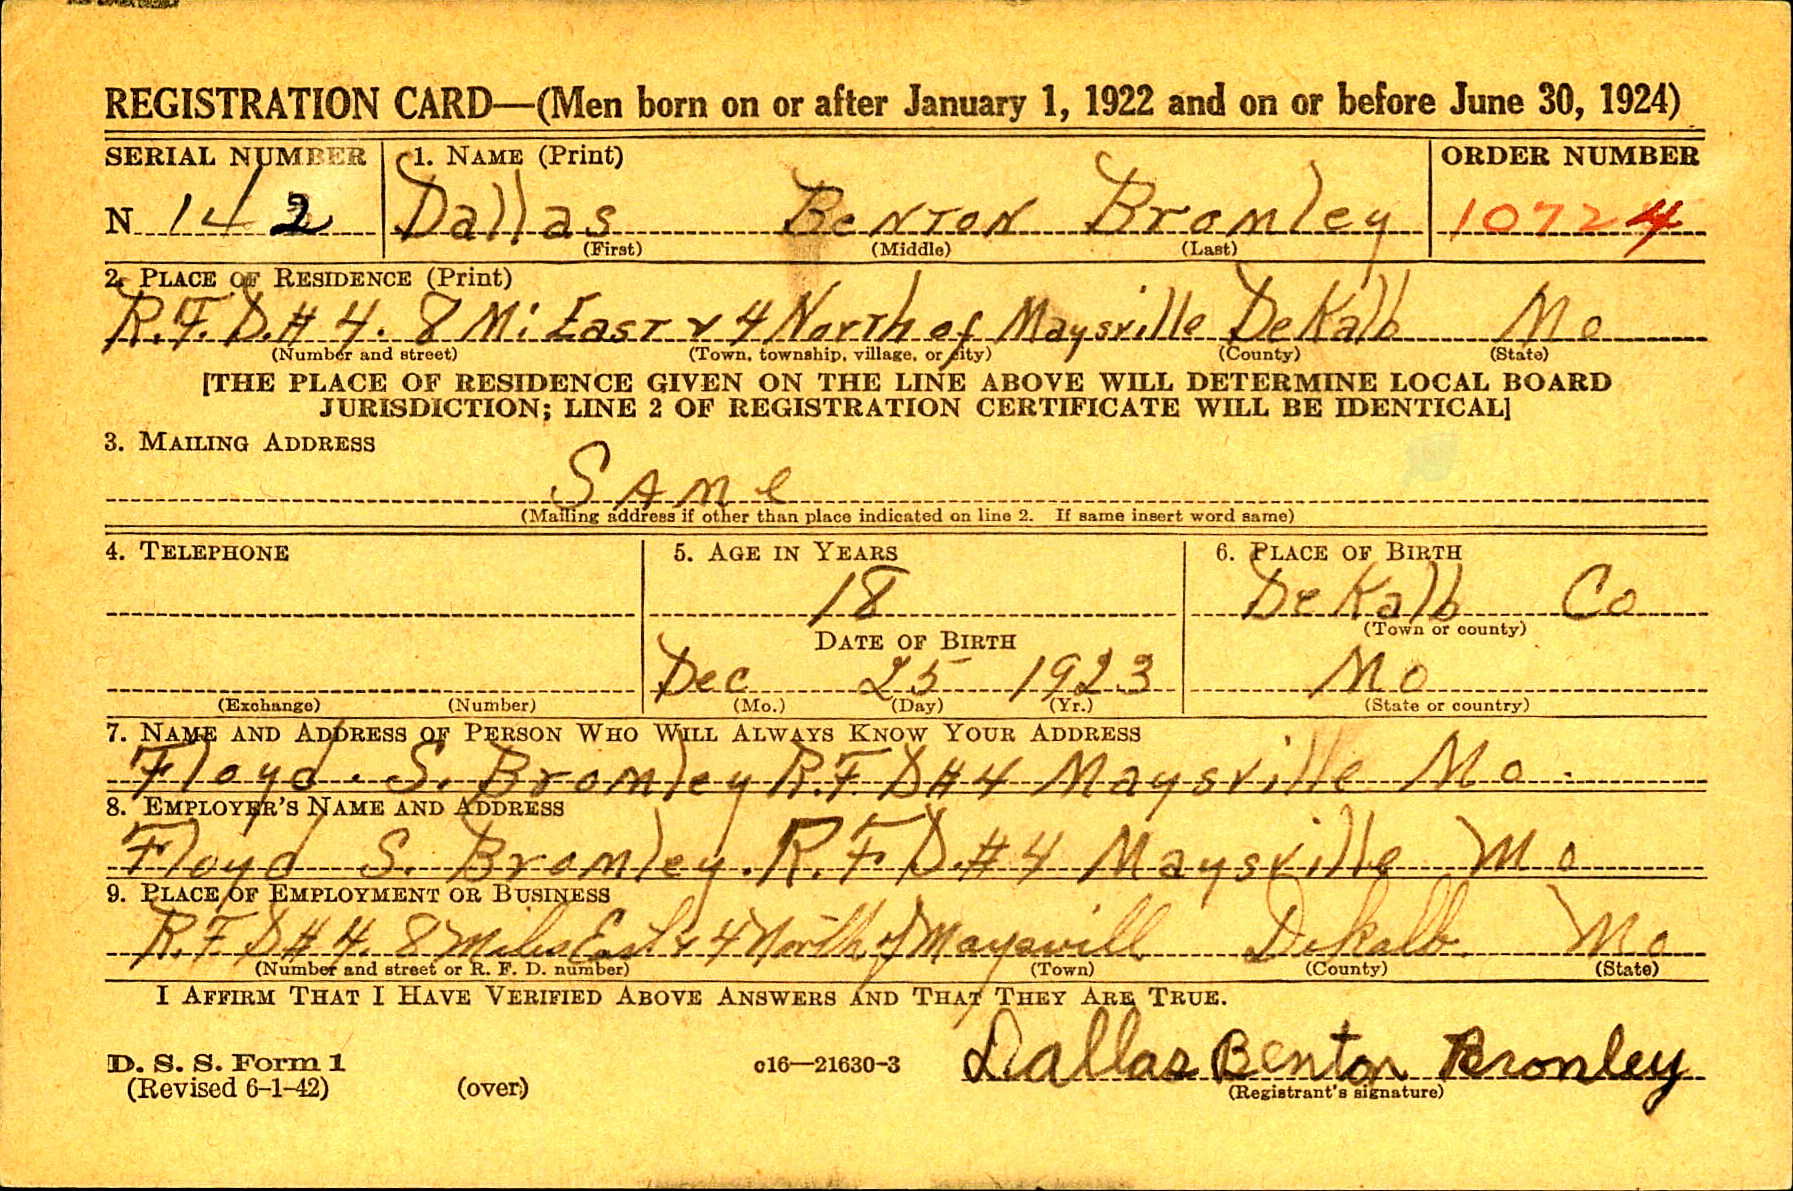 REGISTRATION CARD—(Men born on or after January 1, 1922 and on or before June 30, 1924)
SERIAL NUMBER 1. NAME (Print) ORDER NUMBER
N 142 Dallas Benton Bromley 10724
(First) (Middle) (Last)
2. PLACE OF RESIDENCE (Print)
R.F.D.# 4. 8 Mi East & 4 North of Maysville DeKalb Mo
(Number and street) (Town, township, village, or city) (County) (State)
[THE PLACE OF RESIDENCE GIVEN ON THE LINE ABOVE WILL DETERMINE LOCAL BOARD
JURISDICTION; LINE 2 OF REGISTRATION CERTIFICATE WILL BE IDENTICAL]
3. MAILING ADDRESS
Same
(Mailing address if other than place indicated on line 2. If same insert word same)
4. TELEPHONE 5. AGE IN YEARS 6. PLACE OF BIRTH
18 DeKalb Co
(Town or county)
DATE OF BIRTH
Dec 25 1923 Mo
(Exchange) (Number) (Mo.) (Day) (Yr.) (State or country)
7. NAME AND ADDRESS OF PERSON WHO WILL ALWAYS KNOW YOUR ADDRESS
Floyd. S. Bromley R.F.D#4 Maysville Mo.
8. EMPLOYER'S NAME AND ADDRESS
Floyd S. Bromley. R.F.D.#4 Maysville Mo
9. PLACE OF EMPLOYMENT OR BUSINESS
R.F.D# 4. 8 Miles East & 4 North of Maysvill Dekalb. Mo
(Number and street or R. F. D. number) (Town) (County) (State)
I AFFIRM THAT I HAVE VERIFIED ABOVE ANSWERS AND THAT THEY ARE TRUE.
D. S. S. Form 1
(Revised 6-1-42) (over) c16—21630-3 Dallas Benton Bromley
(Registrant's signature)